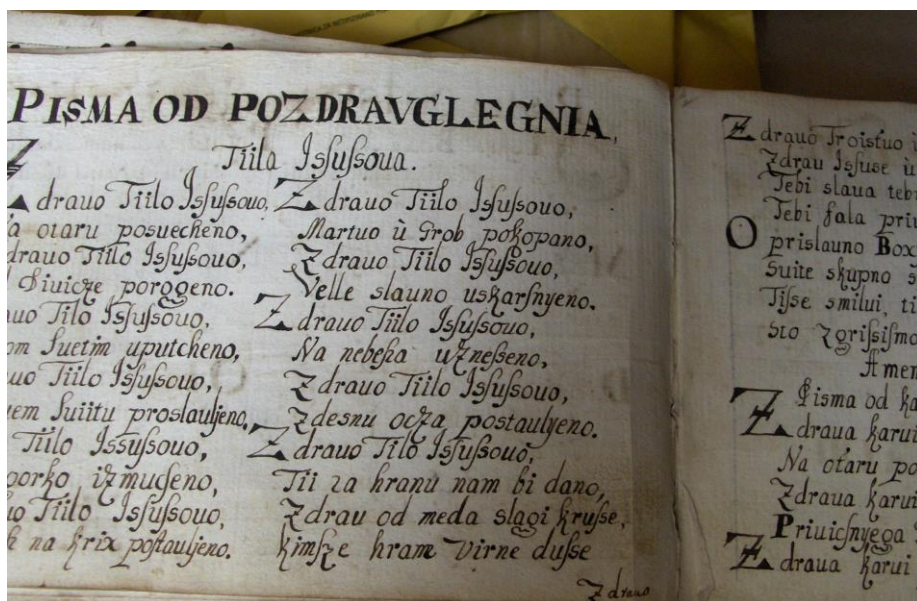 PISMA OD POZDRAVGLEGNIA,
Tiila Isſuſſoua.
Zdrauo Tiilo Isſuſſouo,
otaru posuecheno,
drauo Tiilo Isſuſſouo,
Diuicze porogeno.
Tilo Isſuſſouo,
Suetim uputcheno,
Tiilo Isſuſſouo,
Suiitu proslauljeno,
Tiilo Issuſſouo,
izmucſeno,
Tiilo Isſuſſouo,
na krix poſtauljeno.
Zdrauo Tiilo Isſuſſouo,
Martuo ù Grob pokopano,
Zdrauo Tiilo Isſuſſouo,
Velle slauno uskarſnyeno.
Zdrauo Tiilo Isſuſſouo,
Na nebeſka uzneſſeno,
Zdrauo Tiilo Isſuſſouo,
Zdesnu ocza postaulyeno.
Zdrauo Tilo Isſuſſouo,
Tii za hranu nam bi dano,
Zdrau od meda slagi kruſſe,
kimſze hrame virne duſſe
Zdrauo
Zdrauo Troistuo
Zdrau Isſuse ù
Tebi slaua
Tebi fala
O prislauno
Suite skupno
Tiſſe smilui,
ſto zgriſſiſmo
Amen
Pisma od
Zdraua karui
Na otaru
Zdraua karui
Priuicſnyega
Zdraua karui